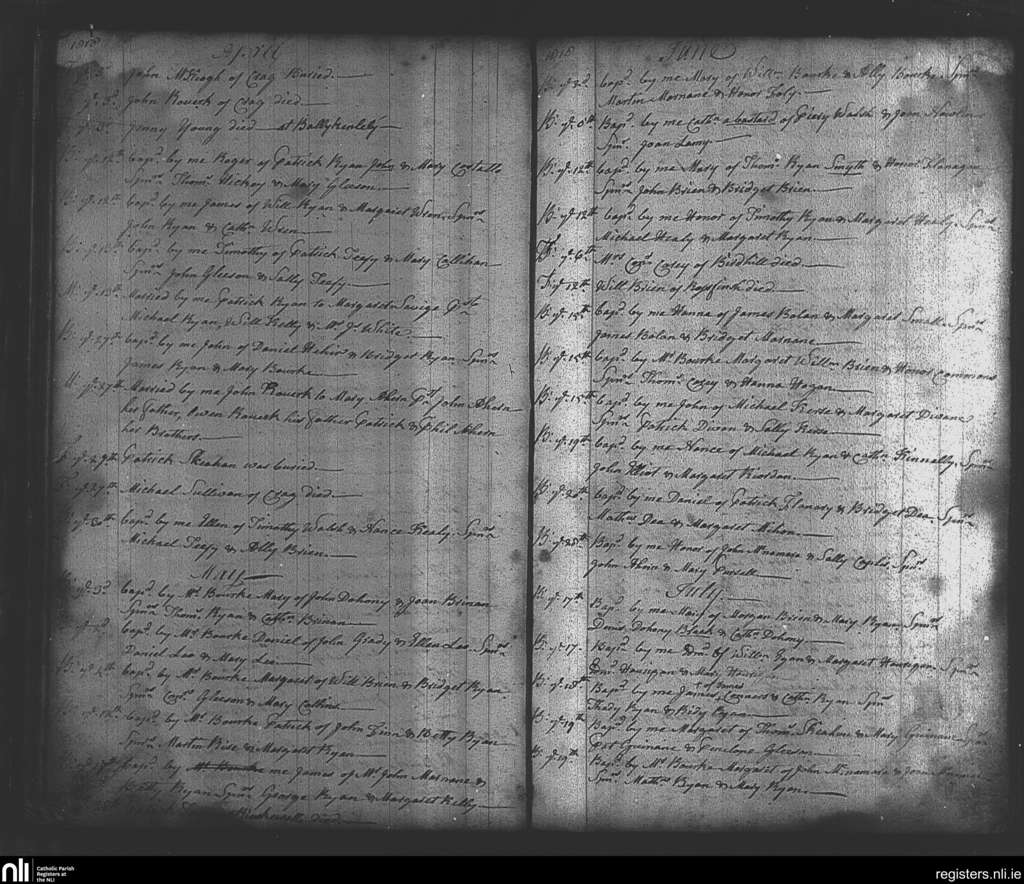 1818
April
John McKeogh of Crag Buried.
ye. 3d. John Rouerk of Crag died
Jenny Young died at Ballykenlely
Bapd. by me Roger of Patrick Ryan John & Mary Costello
Spnrs. Thoms. Hickey & Mary Gleeson.
ye. 12th Bapd. by me James of Will Ryan & Margaret Wren, Spnrs.
John Ryan & Cathn. Wren
Bapd. by me Timothy of Patrick Teefy & Mary Callihan
Spnrs. John Gleeson & Sally Teefy.
Married by me Patrick Ryan to Margaret Savige
Michael Ryan, Will Kelly & Mr. Jn. White.
ye. 27th Bapd. by me John of Daniel & Bridget Ryan Spnrs.
James Ryan & Mary Bourke
M: ye. 27th Married by me John Rouerk to Mary Ahern Pst. John Ahern
her Father, Owen Rouerk his Father Patrick & Phil Ahern
her Brothers.
ye. 29th Patrick Skeahan was buried
ye. 29th Michael Sullivan of Crag died.
ye. 30th Bapd. by me Ellen of Timothy Walsh & Nance Healy, Spnrs.
Michael Teefy & Ally Brien.
May
ye. 3d. Bapd. by Mr. Bourke Mary of John Dohony & Joan Brinan
Spnrs. Thoms. Ryan & Cathn. Brinan
Bapd. by Mr. Bourke Daniel of John Grady & Ellen Lee Spnrs.
Daniel Lee & Mary Lee.
Bapd. by Mr. Bourke Margaret of Will Brien & Bridget Ryan
Spnrs. Gleeson & Mary Collins.
Bapd. by Mr. Bourke Patrick of John Finn & Betty Ryan
Spnrs. Martin Rise & Margaret Ryan
Bapd. by Mr. Bourke me James of Mr. John Marnane &
Betty Ryan Spnrs. George Ryan & Margaret Kelly
died
1818
June
B: ye. 2d. Bapd. by me Mary of Willm. Bourke & Ally Bourke, Spnrs.
Martin Marnane & Honor Foly.
B: ye. 6th Bapd. by me Cathn. a bastard of Piery Walsh & Joan
Spnr. Joan Lamy.
B: ye. 12th Bapd. by me Mary of Thoms. Ryan Smyth & Honor Flanagan
Spnrs. John Brien & Bridget Brien.
B: ye. 12th Bapd. by me Honor of Timothy Ryan & Margaret Healy, Spnrs.
Michael Healy & Margaret Ryan.
ye. 6th Mrs. Casey of Birdhill died.
ye. 12th Will Brien of died.
B: ye. 12th Bapd. by me Hanna of James Bolan & Margaret Small Spnrs.
James Bolan & Bridget Marnane
B: ye. 15th Bapd. by Mr. Bourke Margaret Willm. Brien & Honor Commons
Spnrs. Thoms. Casey & Hanna Hogan
B: ye. 15th Bapd. by me John of Michael Kerse & Margaret Diwane
Spnrs. Patrick Diwan & Sally Kerse
B: ye. 19th Bapd. by me Nance of Michael Ryan & Cathn. Kinnally, Spnrs.
John Elliot & Margaret Riordan.
B: ye. 20th Bapd. by me Daniel of Patrick Flanary & Bridget Dea, Spnrs.
Mathew Dea & Margaret Mehon.
B: ye. 25th Bapd. by me Honor of John Mcnamara & Sally Spnrs.
John Ahern & Mary Pursell
July
B: ye. 17th Bapd. by me Mary of Morgan Birin & Mary Ryan, Spnrs.
Denis Dohony Black & Cathn. Dohony
B: ye. 17 Bapd. by me of Willm. Egan & Margaret Hourigan, Spnrs.
Hourigan & Mary
B: ye. 18th Bapd. by me James Connors & Cathn. Ryan Spnrs.
Thady Ryan & Bidy Ryan
B: ye. 19th Bapd. by me Margaret of Thoms. Skeahan & Mary Guinane
Pat Guinane & Penelope Gleeson
B: ye. 19th Bapd. by Mr. Bourke Margaret of John Mcnamara & Joan
Spnrs. Mathw. Ryan & Mary Ryan.
nli
Catholic Parish
Registers at
the NLI
registers.nli.ie